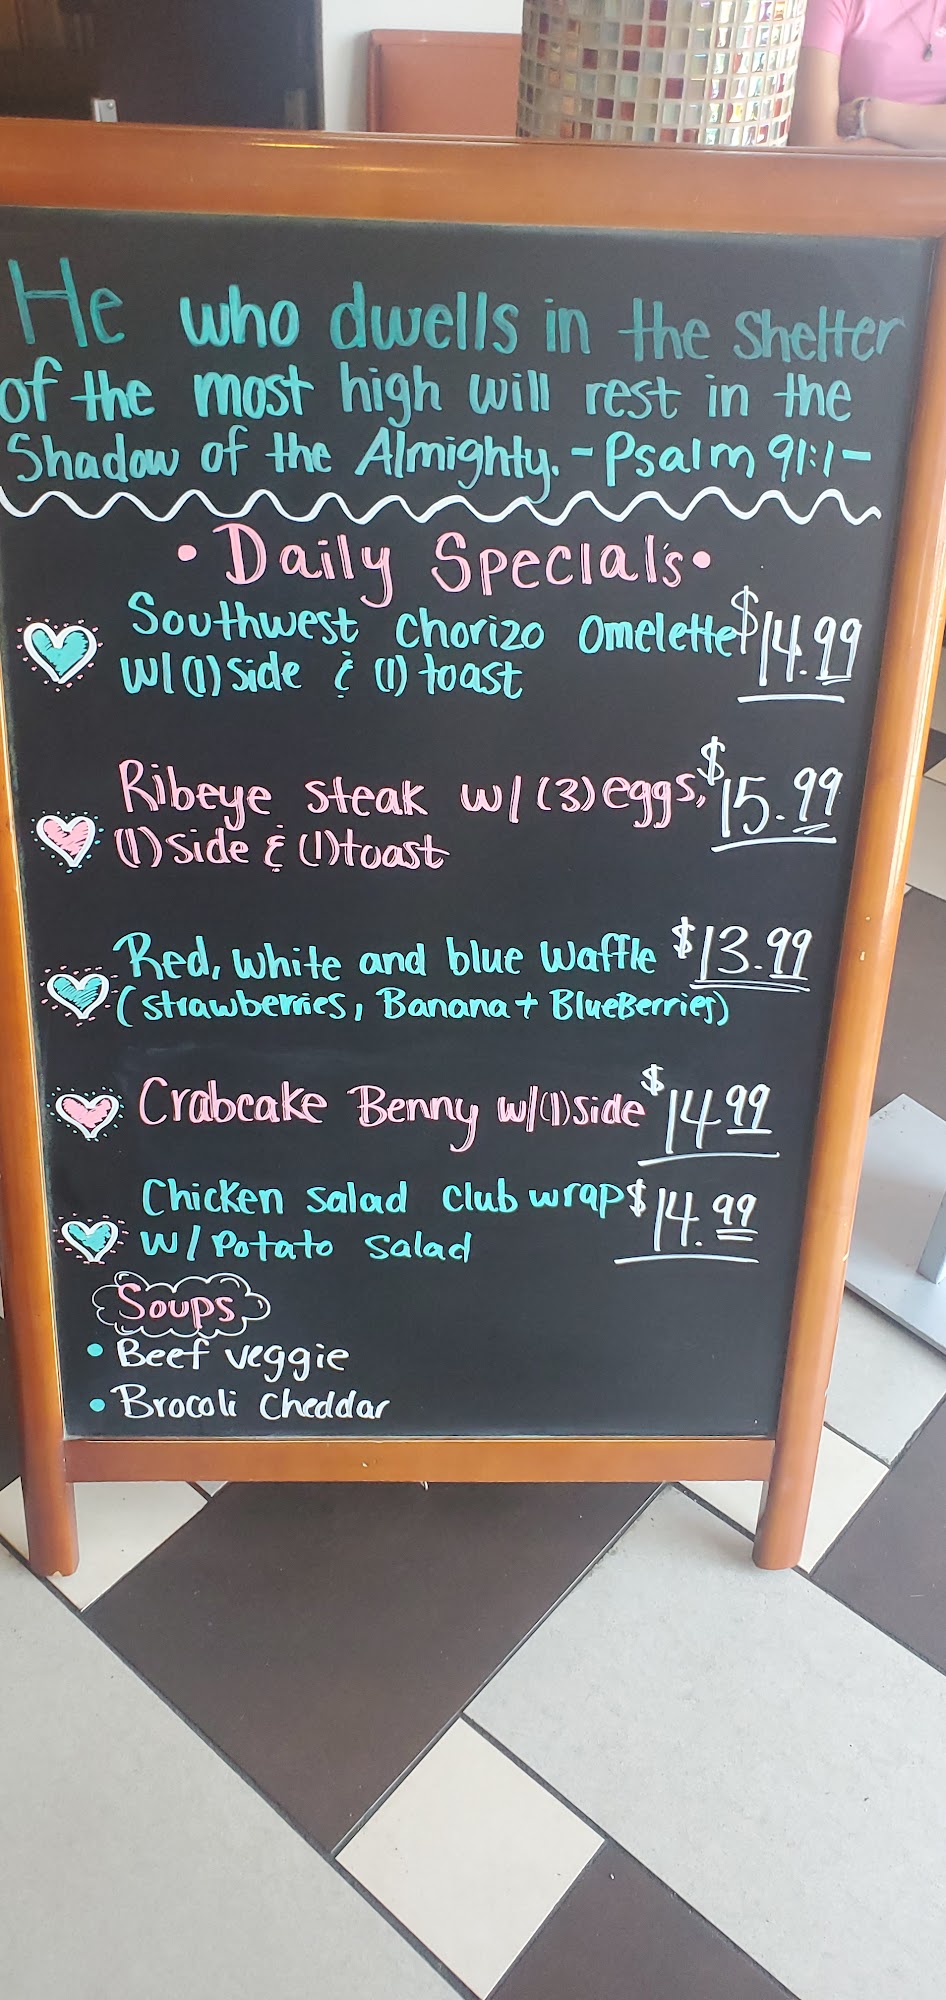 He who dwells in the Shelter
of the most high will rest in the
Shadow of the Almighty. - Psalm 91:1 -
• Daily Specials •
Southwest Chorizo Omelette $14.99
w/ (1) side & (1) toast
Ribeye steak w/ (3) eggs, $15.99
(1) side & (1) toast
Red, white and blue waffle $13.99
(strawberries, Banana + BlueBerries)
Crabcake Benny w/ (1) side $14.99
Chicken salad club wrap $14.99
w/ Potato salad
Soups
• Beef veggie
• Brocoli Cheddar